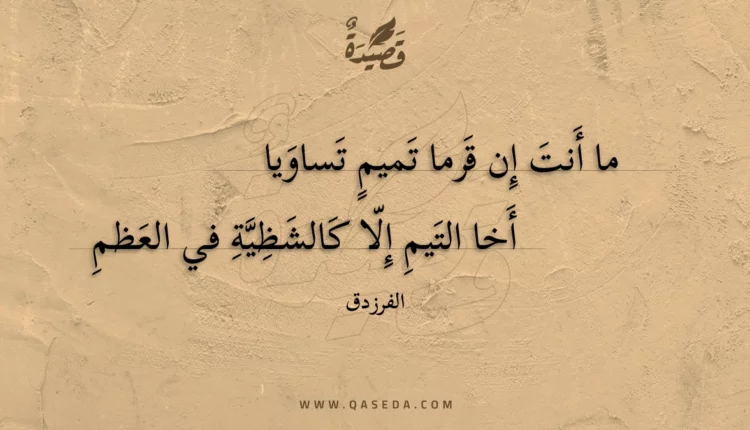 قَصِيْدَةٌ
ما أَنتَ إِن قَرما تَميمٍ تَساوَيا
أَخا التَيمِ إِلّا كَالشَظِيَّةِ في العَظمِ
الفرزدق
WWW.QASEDA.COM